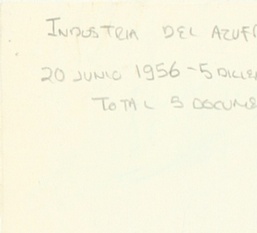 INDUSTRIA DEL AZUF
20 JUNIO 1956 - 5 DICIE
TOTAL 5 DOCUME